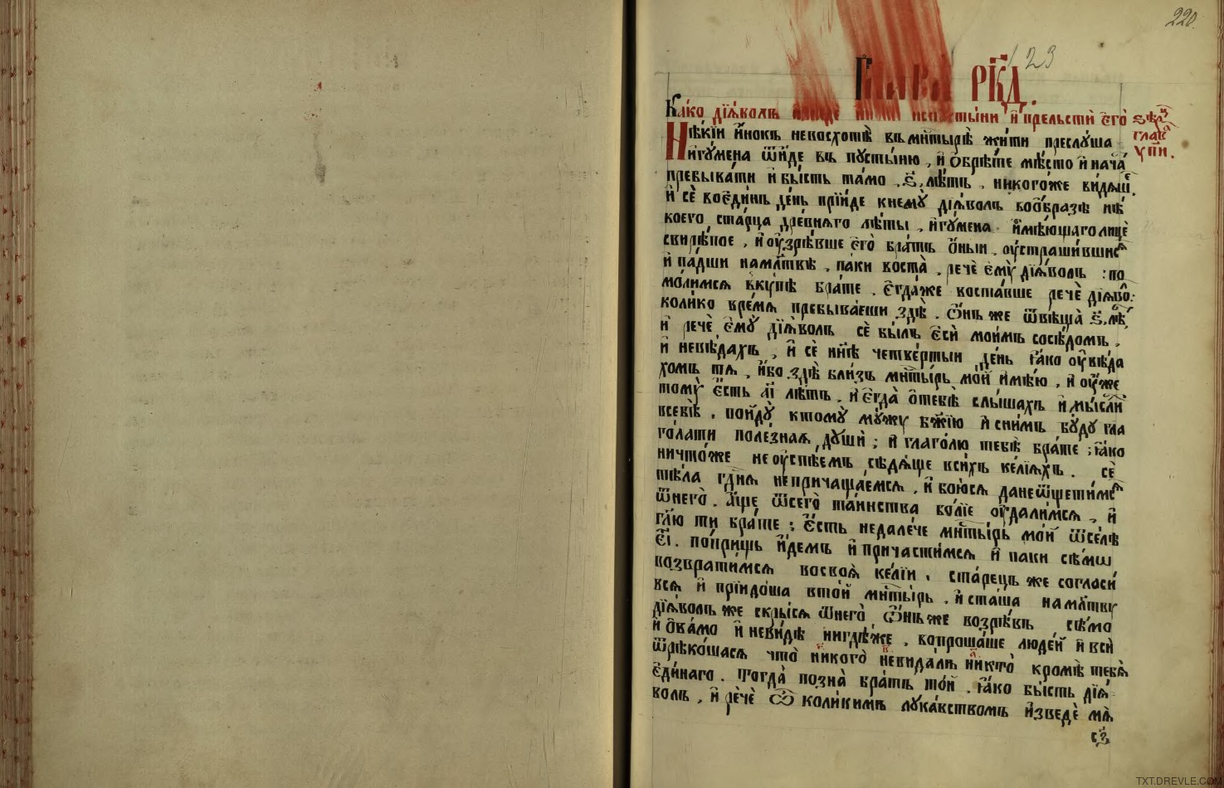 220
123
Глава РК҃Д.
Ка́ко дїѧ́волъ и҆нока и҆спⷭ҇ты́ни и҆прельстѝ є҆го̀
Нѣ́кїи и҆́нокъ невосхотѣ̀ въмн҃тырѣ̀ жи́ти преслꙋша
игꙋ́мена ѿи́де въ пꙋсты́ню, и҆ ѻбрѣ́те мѣ́сто и҆ нача̀
пребыва́ти и҆ бы́сть та́мо ,ѕ҃, лѣ́тъ, никого́же видѧщѐ.
и҆ сѐ воє҆ди́нъ де́нь прїи́де кнемꙋ̀ дїѧ́волъ воѻ́бразѣ нѣ́
коего̀ ста́рца дре́внѧго лѣ́ты, и҆гꙋ́мена и҆мѣ́ющаго лицѐ
свирѣ́пое, и҆ оу҆зрѣ́вше є҆го̀ бра́тъ о҆́ныи, оу҆страши́вшисѧ
и҆ па́дши намл҃твѣ, па́ки воста̀. речѐ є҆мꙋ̀ дїѧ́волъ : по
мо́лимсѧ вкꙋ́пѣ бра́те. є҆гда́же воста́вше речѐ дїѧ́во:
коли́ко вре́мѧ пребыва́еши здѣ̀. ѻ҆́нъ же ѿвѣща̀ ѕ҃, лѣ́
и҆ речѐ є҆мꙋ̀ дїѧ́волъ сѐ бы́лъ є҆сѝ мои́мъ сосѣ́домъ,
и҆ невѣ́дахъ, и҆ сѐ нн҃ѣ четве́ртыи де́нь ꙗ҆́ко оу҆вѣ́да
хомъ тѧ̀, и҆́бо здѣ̀ бли́зъ мн҃ты́рь мо́й и҆мѣ́ю, и҆ оу҆́же
томꙋ̀ є҆́сть а҃і лѣ́тъ. и҆ є҆гда̀ о҆тебѣ̀ слы́шахъ и҆ мы́сли́
всебѣ̀, пойдꙋ̀ ктомꙋ̀ мꙋ́жꙋ бж҃їю и҆ сни́мъ бꙋ́дꙋ гла
го́лати поле́знаѧ дꙋшѝ ; и҆ глаго́лю тебѣ̀ бра́те ; ꙗ҆́ко
ничто́же неоу҆спѣ́емъ сѣдѧ́ще вси́хъ ке́лїѧхъ. сѐ
тѣ́ла гдⷭ҇нѧ непричаща́емсѧ, и҆ бою́сѧ данеѿщети́мсѧ
ѿнего̀. а҆́ще ѿсего̀ та́инства бо́лїе оу҆дали́мсѧ, и҆
гл҃ю ти бра́те ; є҆́сть недале́че мн҃ты́рь мо́й ѿсе́лѣ
є҃і. по́прищь и҆́демъ и҆ причасти́мсѧ и҆ па́ки сѣ́мѡ
возврати́мсѧ восвоѧ̀ ке́лїи. ста́рецъ же согласи́
всѧ и҆ прїидо́ша вто́й мн҃ты́рь. и҆ ста́ша намл҃твꙋ
дїѧ́волъ же скры́сѧ ѿнего̀, ѻ҆́нъ же возрѣ́въ сѣ́мо
и҆ о҆ва́мо и҆ неви́дѣ нигдѣ́же, вопроша́ше люде́й и҆ всѝ
ѿреко́шасѧ что̀ никого̀ неви́далъ никто̀ кро́мѣ тебѧ̀
є҆ди́наго. Тогда̀ позна̀ бра́тъ то́й. ꙗ҆́ко бы́сть дїѧ́
волъ, и҆ речѐ ѽ коли́кимъ лꙋка́вствомъ и҆зведѐ мѧ̀
TXT.DREVLE.COM